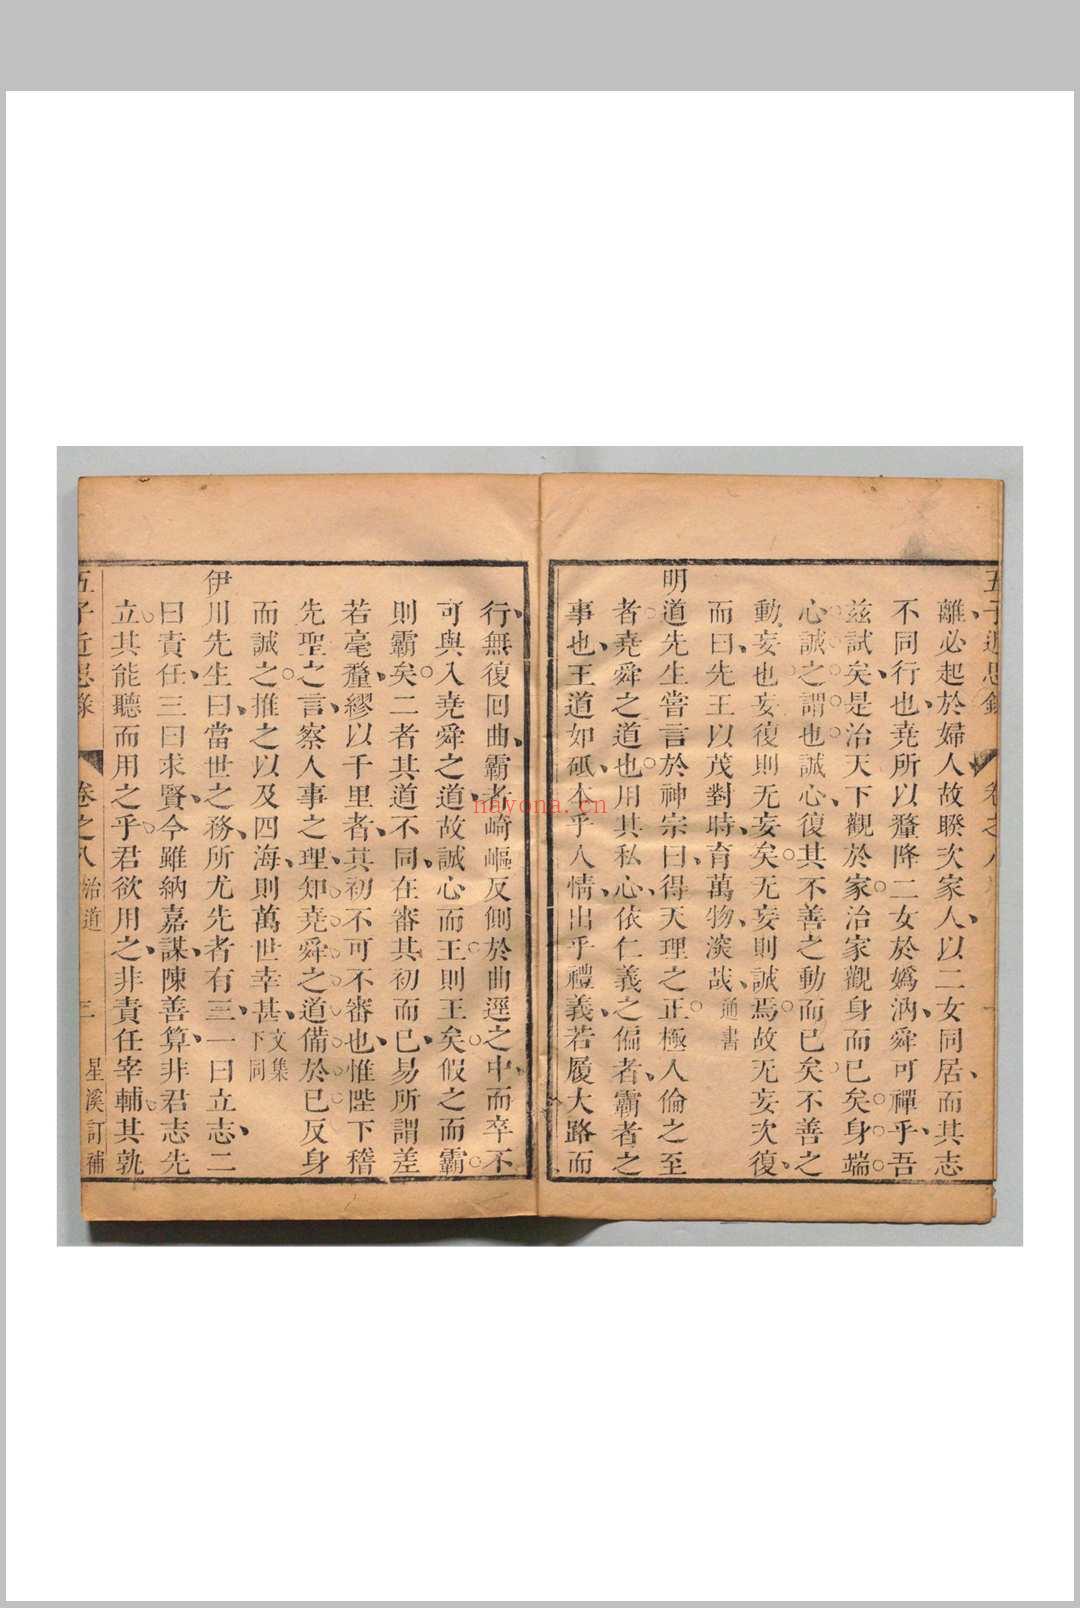 離必起於婦人故睽次家人以二女同居而其志
不同行也堯所以釐降二女於嬀汭舜可禪乎吾
茲試矣是治天下觀於家治家觀身而已矣身端
心誠之謂也誠心復其不善之動而已矣不善之
動妄也妄復則无妄矣无妄則誠焉故无妄次復
而曰先王以茂對時育萬物深哉通書
明道先生嘗言於神宗曰得天理之正極人倫之至
者堯舜之道也用其私心依仁義之偏者霸者之
事也王道如砥本乎人情出乎禮義若履大路而
行無復回曲霸者崎嶇反側於曲逕之中而卒不
可與入堯舜之道故誠心而王則王矣假之而霸
則霸矣二者其道不同在審其初而已易所謂差
若毫釐繆以千里者其初不可不審也惟陛下稽
先聖之言察人事之理知堯舜之道備於已反身
而誠之推之以及四海則萬世幸甚文集下同
伊川先生曰當世之務所尤先者有三一曰立志二
曰責任三曰求賢今雖納嘉謀陳善算非君志先
立其能聽而用之乎君欲用之非責任宰輔其孰
五子近思錄 卷之八 治道 三 星溪訂補
nayona.cn